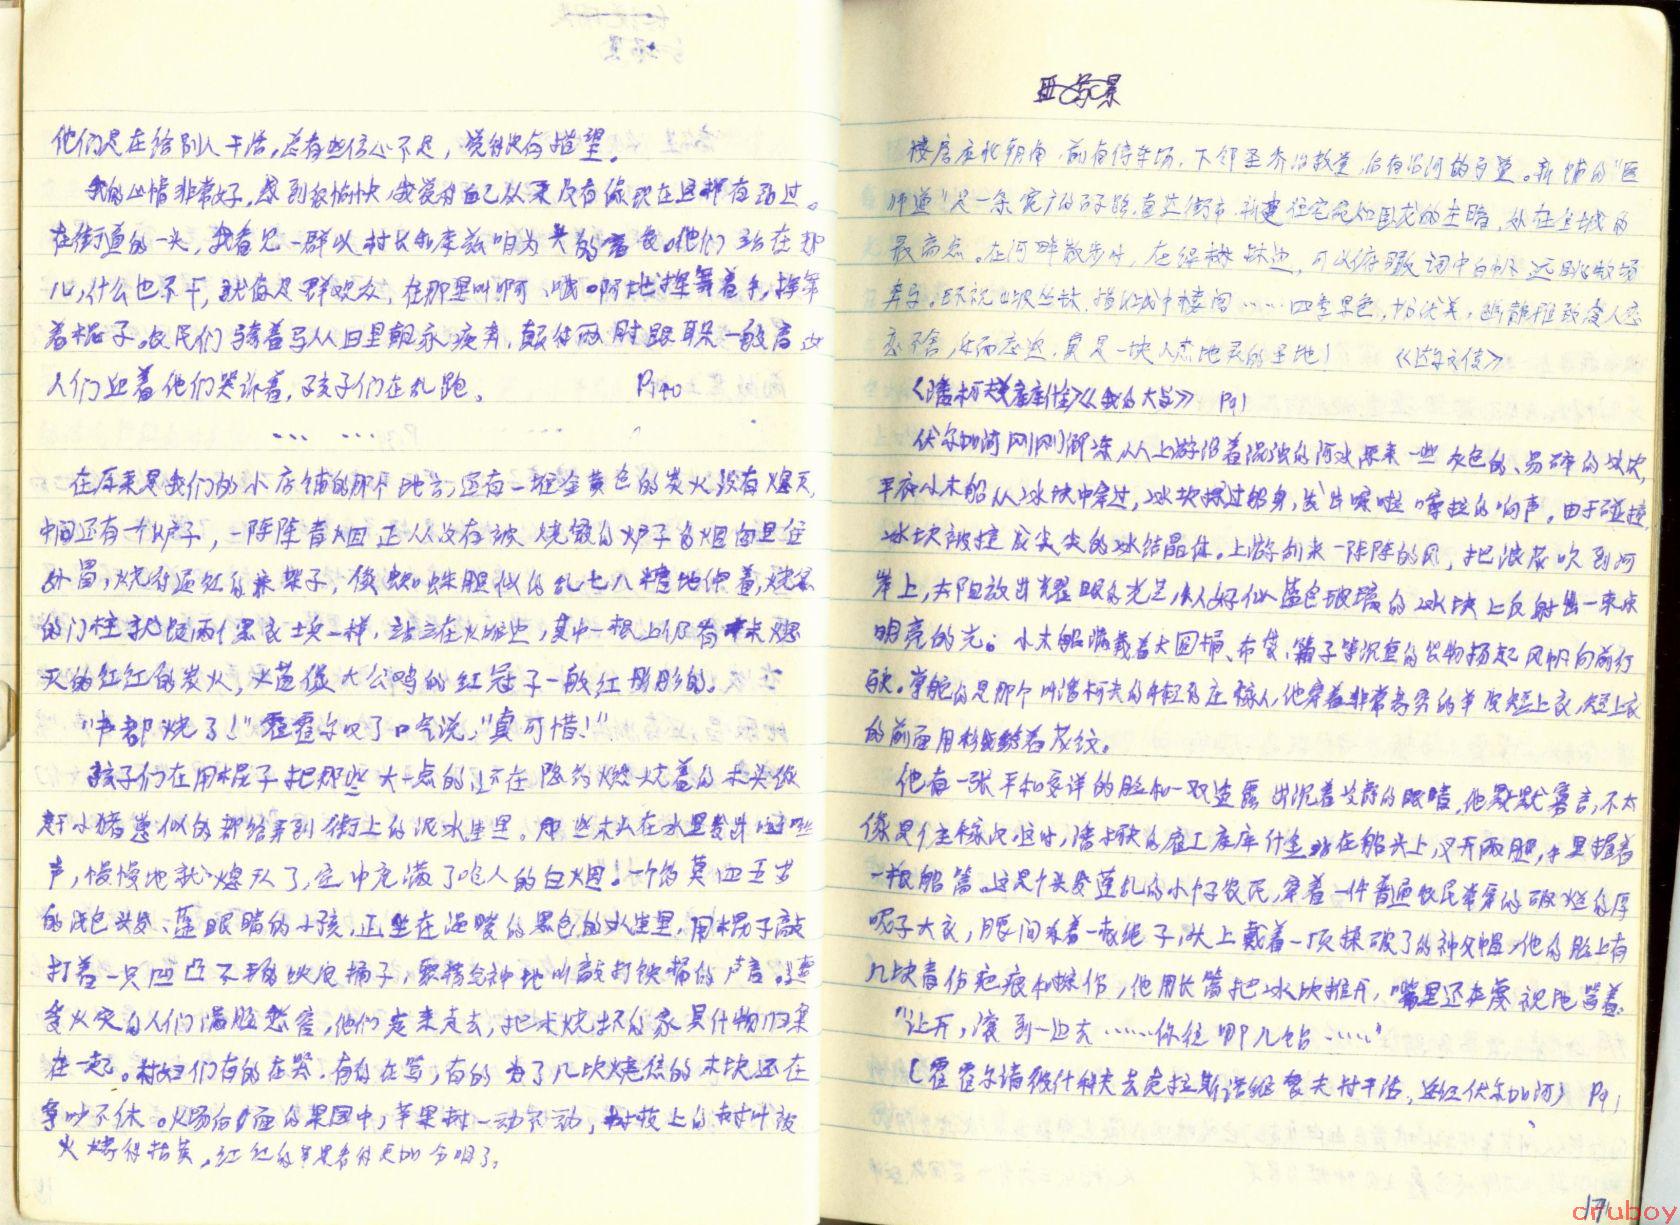 他们是在给别人干活,总有些信心不足,觉得没有指望。
我的心情非常好,感到很愉快,我觉得自己从来没有像现在这样有劲过。
在街道的一头,我看见一群以村长和库兹明为头的富农。他们站在那
儿,什么也不干,就像是群观众,在那里叫啊、喊啊地挥舞着手,挥舞
着棍子。农民们骑着马从田里朝家疾奔,颠得两肘跟耳朵一般高,女
人们迎着他们哭诉着,孩子们在乱跑。 P140
… …
在原来是我们的小店铺的那个地方,还有一堆金黄色的炭火没有熄灭,
中间还有一个炉子,一阵阵青烟正从没有被烧毁的炉子的烟囱里往
外冒,烧得通红的床架子,像蜘蛛腿似的乱七八糟地伸着,烧焦
的门柱就像两个黑衣士兵一样,站立在火堆边,其中一根上仍有未熄
灭的红红的炭火,火苗像大公鸡的红冠子一般红彤彤的。
"书都烧了!"霍霍尔叹了口气说,"真可惜!"
孩子们在用棍子把那些大一点的还在隐约燃烧着的木头像
赶小猪崽似的都给弄到街上的泥水洼里。那些木头在水里发出嗞嗞
声,慢慢地就熄灭了,空中充满了呛人的白烟。一个约莫四五岁
的浅色头发、蓝眼睛的小孩,正坐在温暖的黑色的水洼里,用棍子敲
打着一只凹凸不平的铁皮桶子,聚精会神地听敲打铁桶的声音。遭
受火灾的人们满脸愁容,他们走来走去,把未烧坏的家具什物归集
在一起。村妇们有的在哭,有的在骂,有的为了几块烧焦的木块还在
争吵不休。火场后面的果园中,苹果树一动不动,树枝上的树叶被
火烤得枯黄,红红的苹果看得更加分明了。
景
楼房座北朝南,前有停车场,下邻圣乔治教堂,后有沿河的
道"是一条宽广的石子路,直达街市,新建住宅宛如卧龙的
最高点。在河畔散步时,在绿树林边,可以俯瞰河中白帆,远眺牧场
四季景色,
恋不舍, 真是一块人杰地灵的圣地!
《潘柯夫雇库库什金》《我的大学》 P91
伏尔加河刚刚解冻,从上游沿着混浊的河水漂来一些灰色的、易碎的冰块,
平底小木船从冰块中穿过,冰块擦过船身,发出嚓啦嚓拉的响声。由于碰撞,
冰块被撞成尖尖的冰结晶体。上游刮来一阵阵的风,把浪花吹到河
岸上,太阳放出耀眼的光芒,从好似蓝色玻璃的冰块上反射出一束束
明亮的光。小木船满载着大圆桶、布袋、箱子等沉重的货物扬起风帆向前行
驶。掌舵的是那个叫潘柯夫的年轻的庄稼人,他穿着非常考究的羊皮短上衣,短上衣
的前面用彩线绣着花纹。
他有一张平和安详的脸和一双流露出沉着的眼睛,他默默寡言,不太
像是个庄稼汉。这时,潘柯夫的雇工库库什金站在船头上,叉开两腿,手里握着
一根船篙。这是个头发蓬乱的小个子农民,穿着一件普通农民常穿的破烂的厚
呢子大衣,腰间系着一根绳子,头上戴着一顶揉破了的神父帽,他的脸上有
几块青伤疤痕和擦伤,他用长篙把冰块推开,嘴里还在蔑视地骂着:
"让开,滚到一边去……你往哪儿钻……"
(霍霍尔请彼什科夫去克拉斯诺维多夫村干活,途经伏尔加河) P91
171
druboy